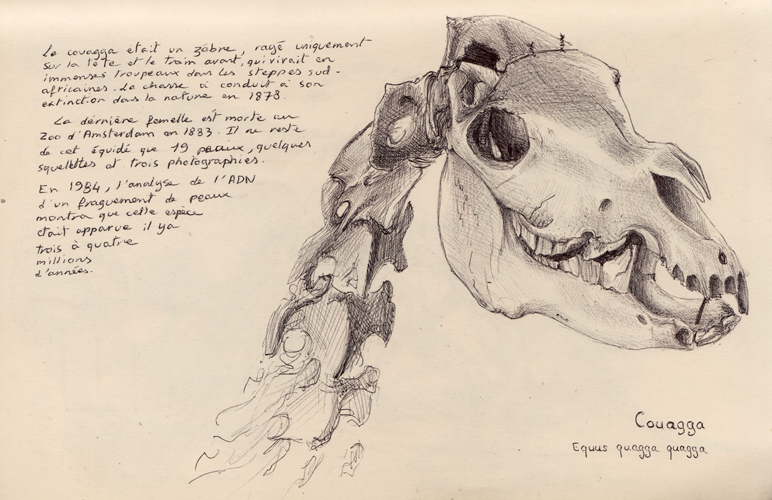 Le couagga etait un zèbre, rayé uniquement
sur la tête et le train avant, qui vivait en
immenses troupeaux dans les steppes sud-
africaines. La chasse à conduit à son
extinction dans la nature en 1878.
La dernière femelle est morte au
Zoo d'Amsterdam en 1883. Il ne reste
de cet équidé que 19 peaux, quelques
squelettes et trois photographies.
En 1984, l'analyse de l'ADN
d'un fraguement de peaux
montra que cette espèce
était apparue il y a
trois à quatre
millions
d'années.
Couagga
Equus quagga quagga